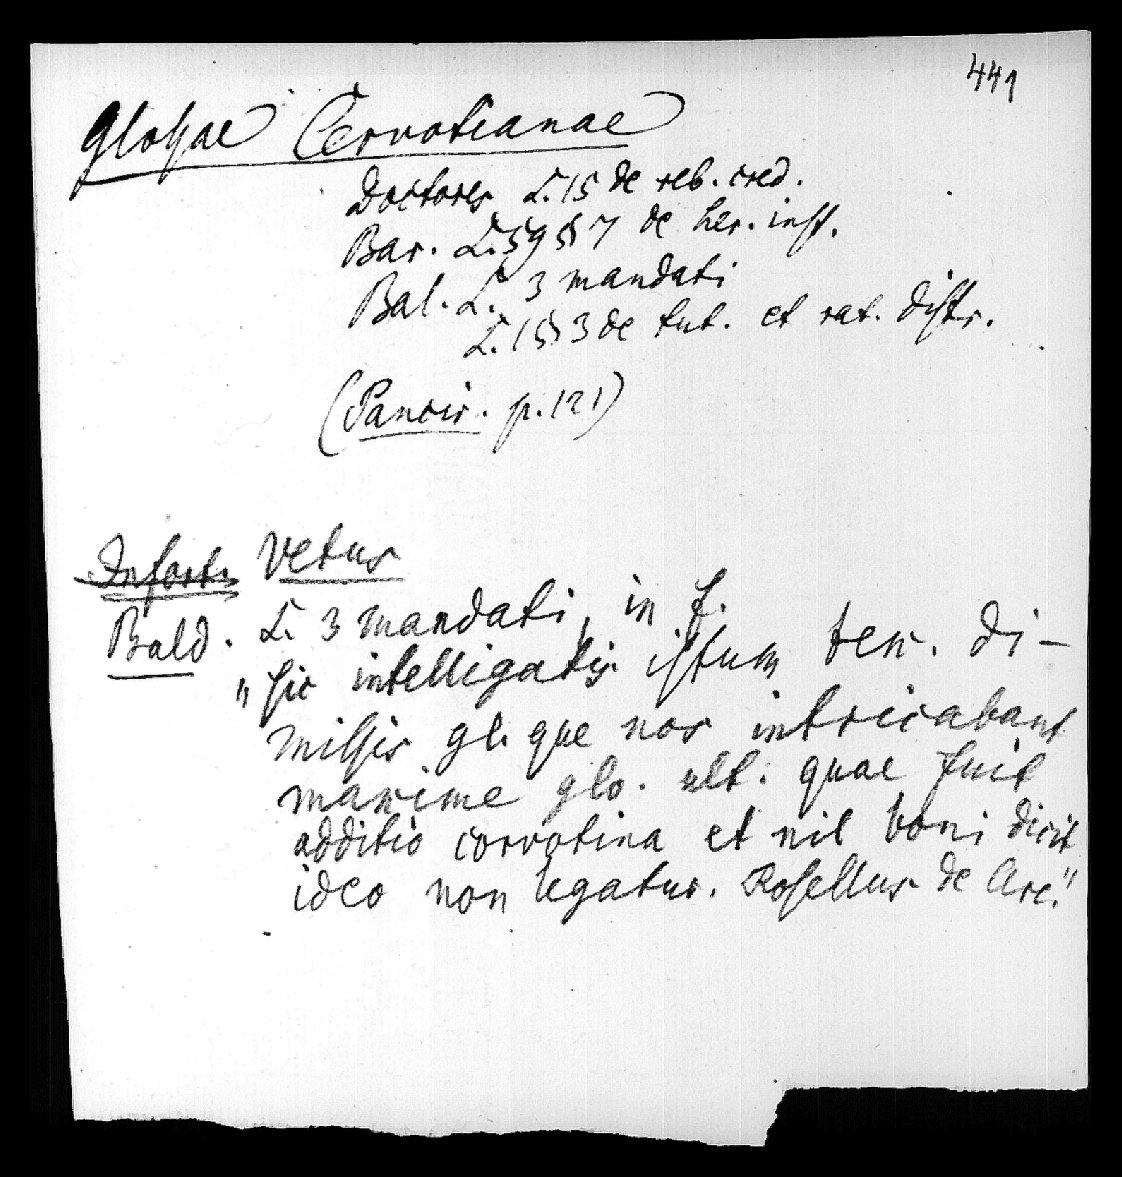 441
Glossae Cervotianae
Doctores L. 15 de reb. cred.
Bar. L. 59 § 7 de her. inst.
Bal. L. 3 mandati
L. 1 § 3 de tut. et rat. distr.
(Pancir. p. 121)
Infort. Vetus
Bald. L. 3 mandati, in f.
"sic intelligatis istum tex. di-
missis gl. que nos intricabant
maxime glo. ult. quae fuit
additio corvotina et nil boni dicit
ideo non legatur. Rosellus de Are."